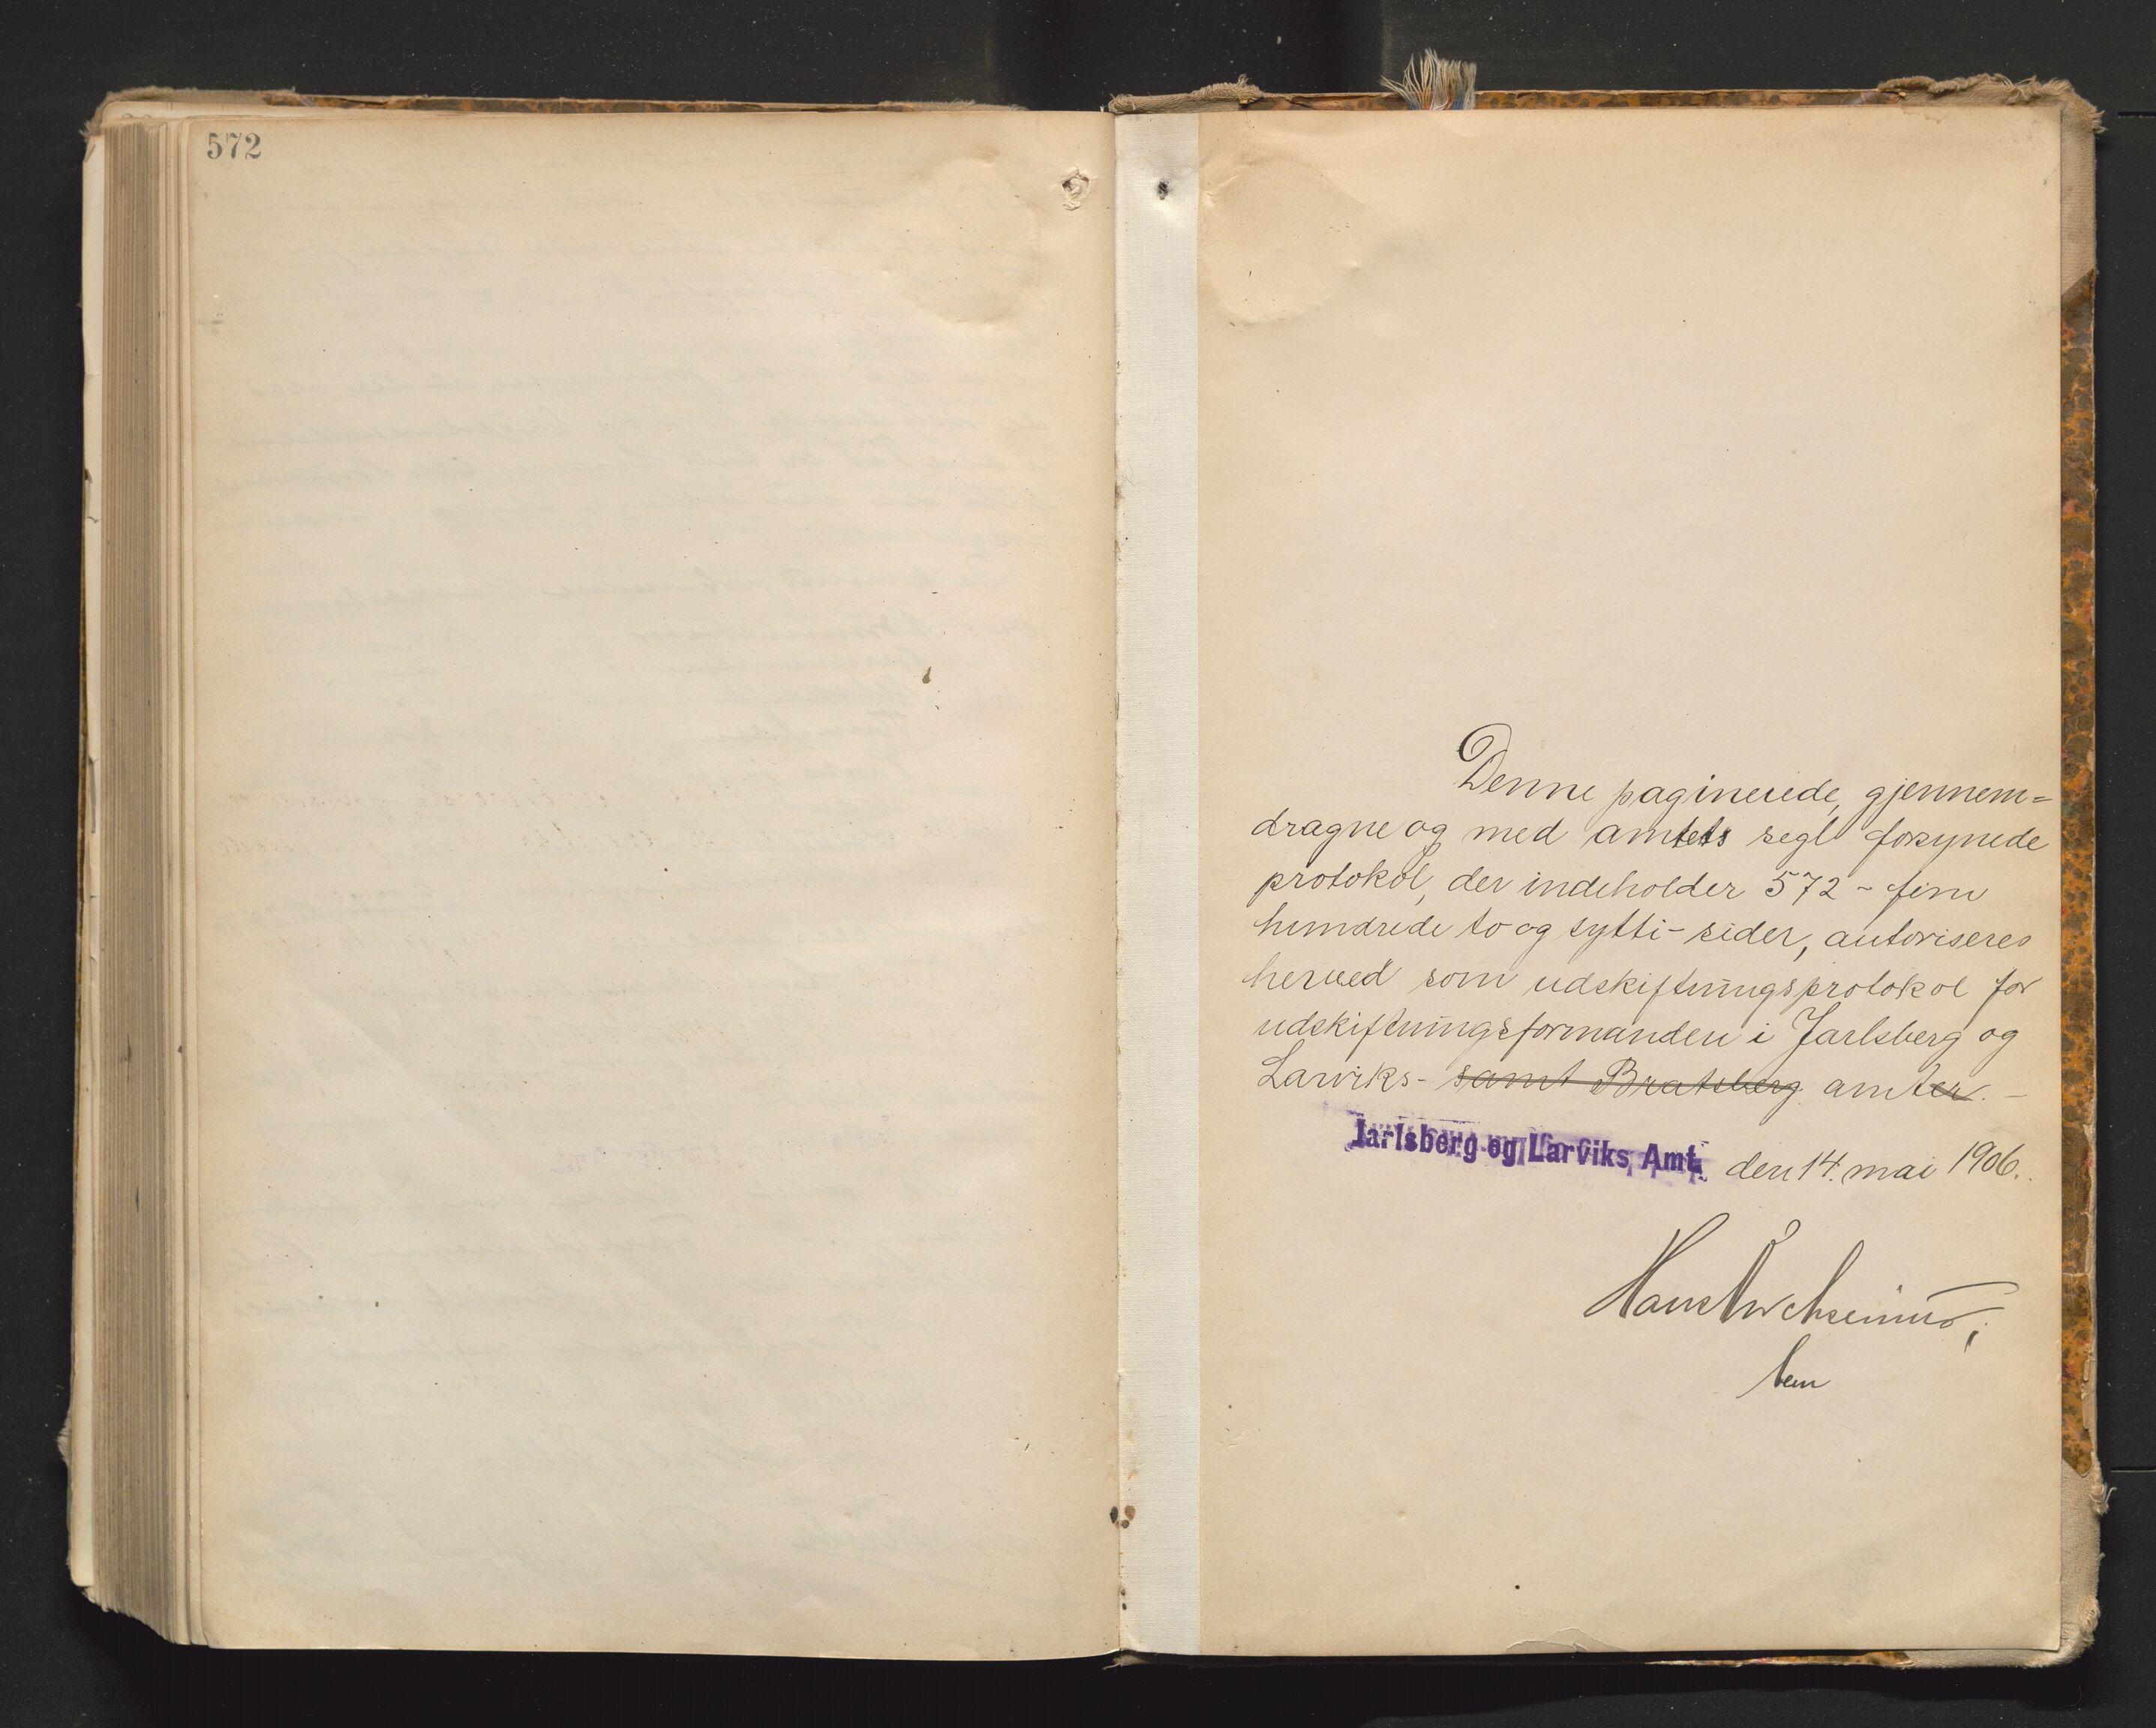 572
Denne paginerede, gjennem=
dragne og med amtets segl forsynede
protokol, der indeholder 572 - fem
hundrede to og sytti - sider, autoriseres
herved som udskiftningsprotokol for
udskiftningsformanden i Jarlsberg og
Larviks - samt Bratsberg amter. -
Jarlsberg og Larviks Amt, den 14. mai 1906.
Hans